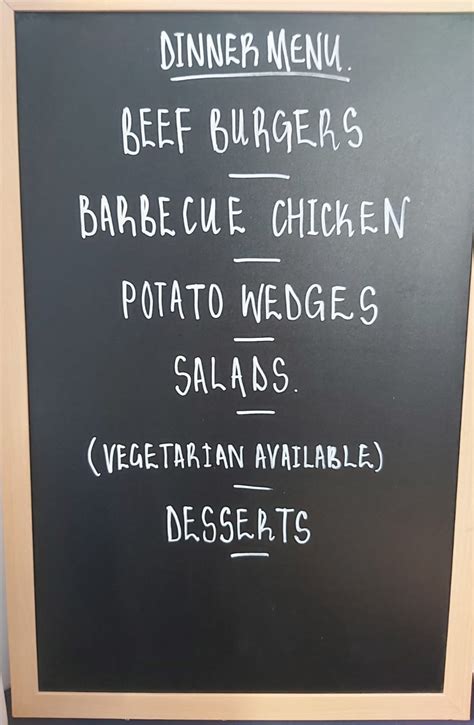 DINNER MENU.
BEEF BURGERS
BARBECUE CHICKEN
POTATO WEDGES
SALADS.
(VEGETARIAN AVAILABLE)
DESSERTS